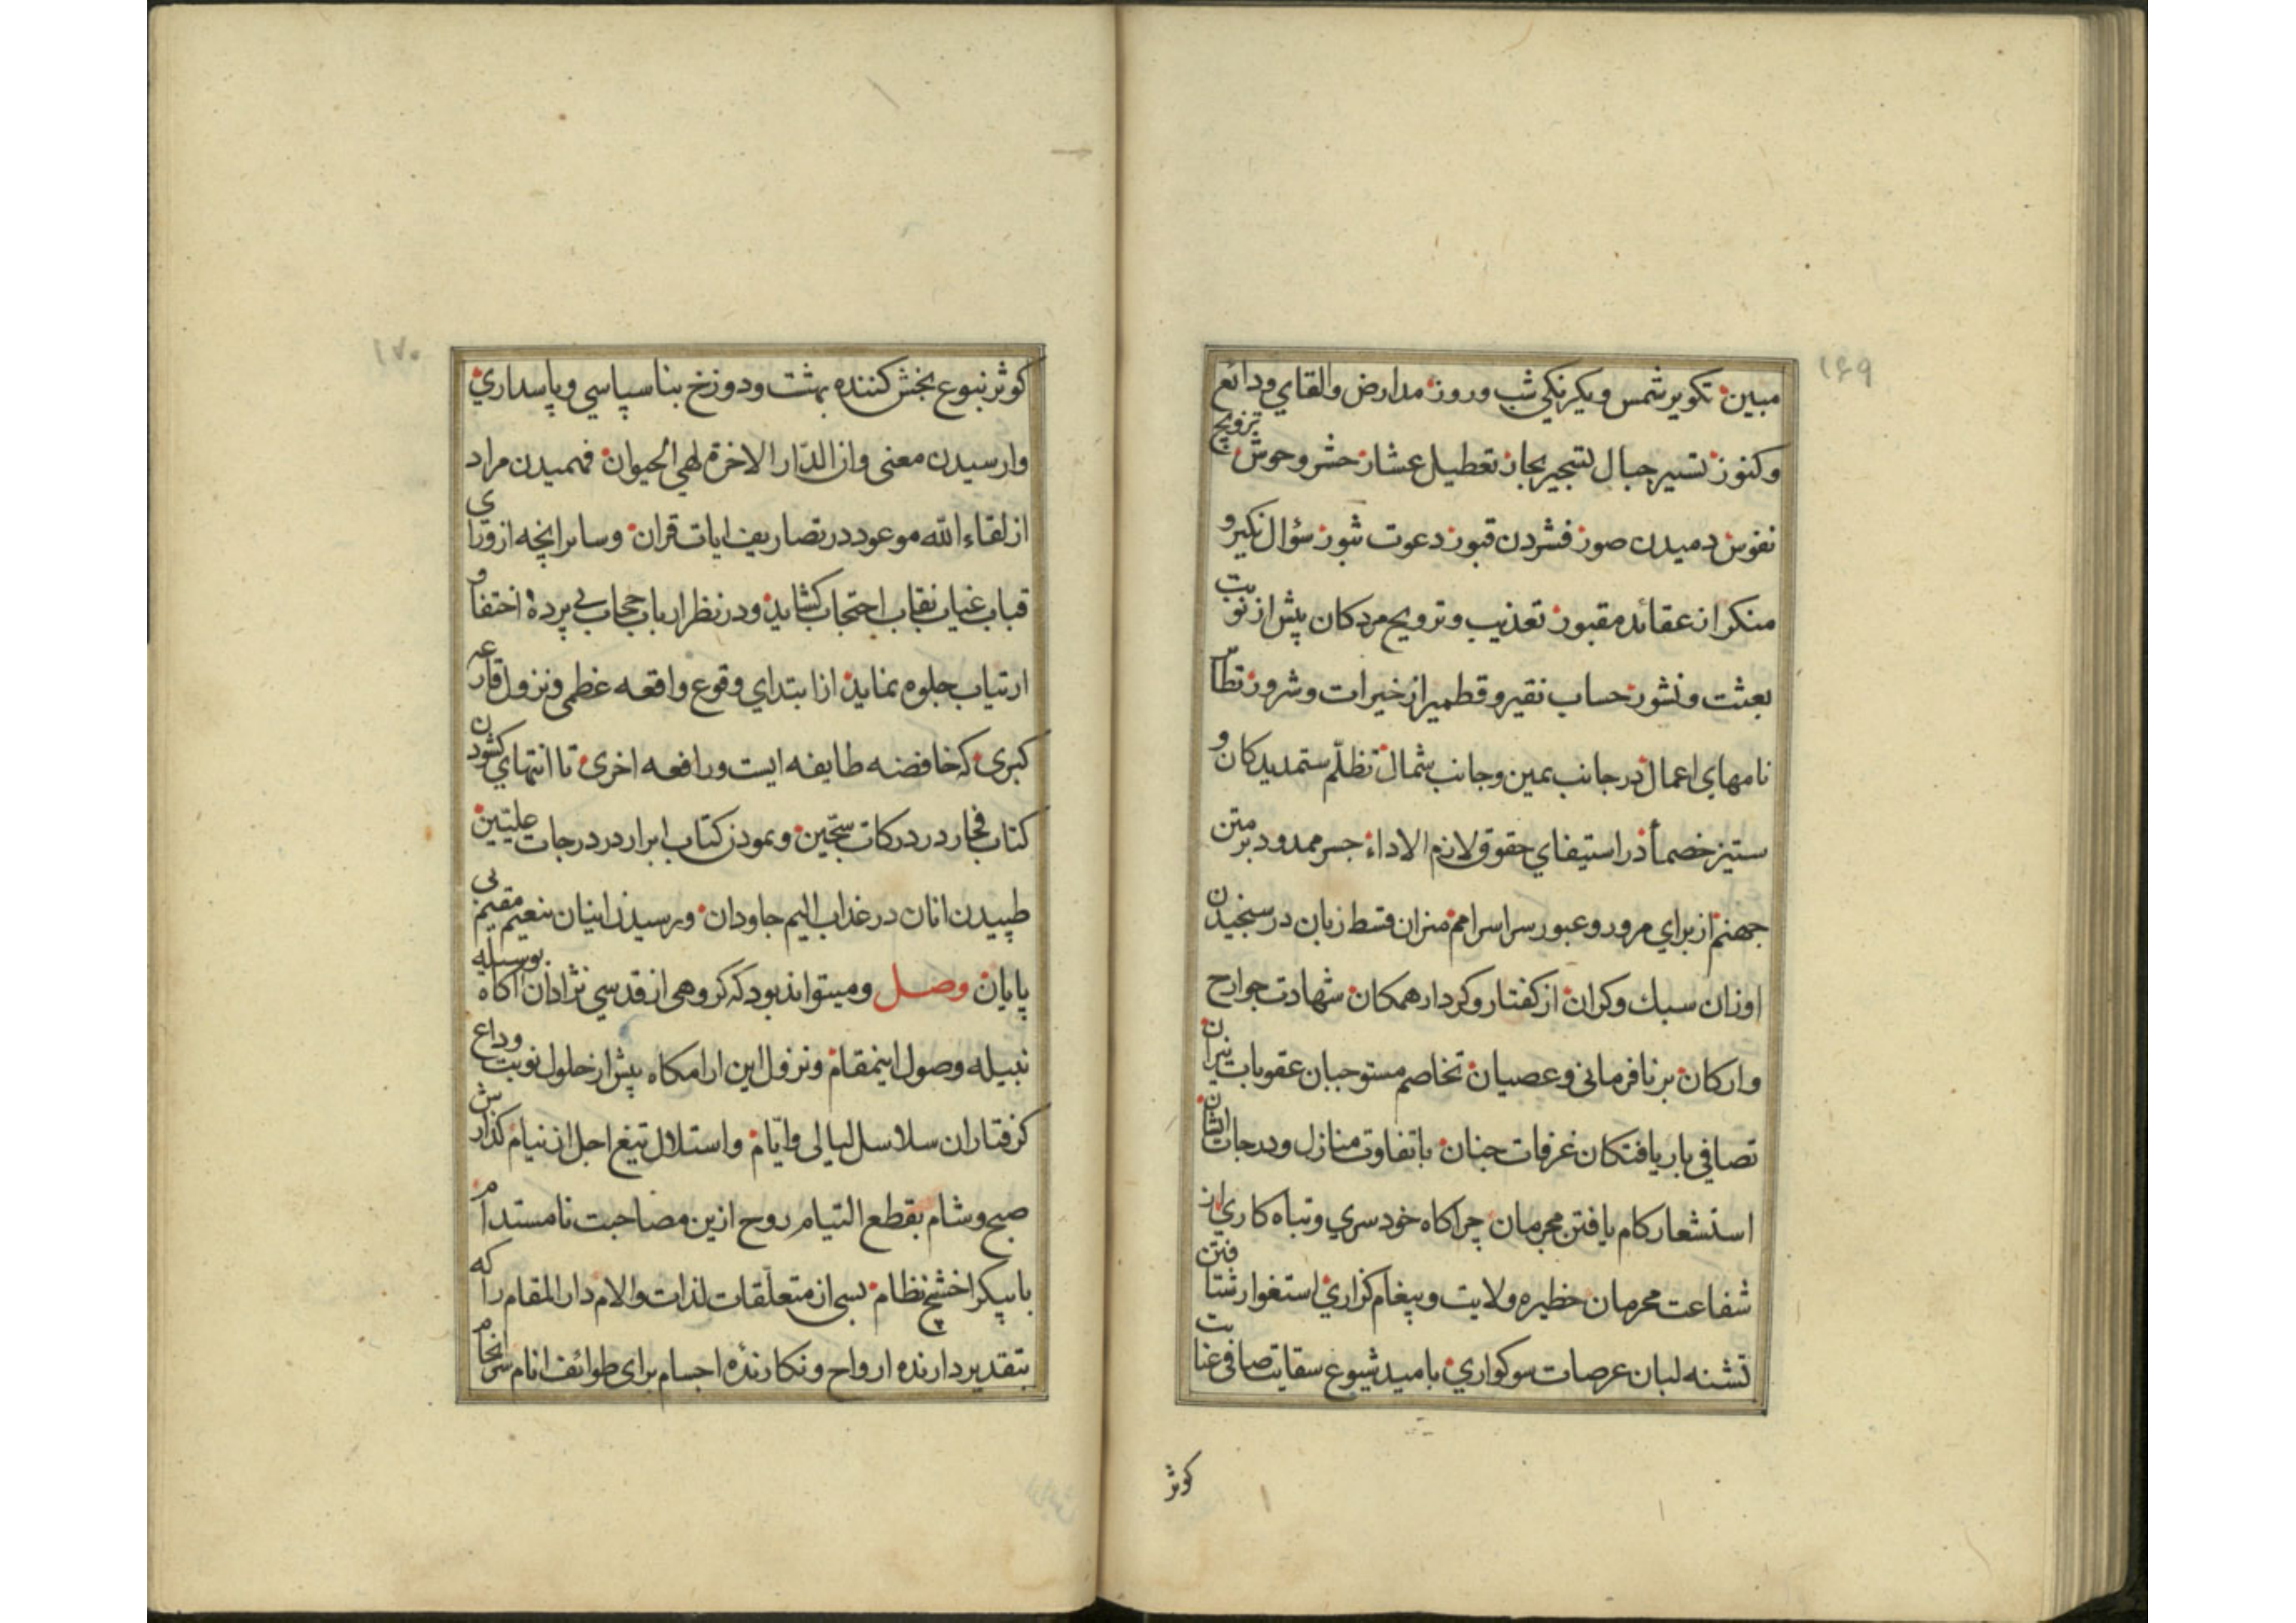 ۱۶۹
مبین تکویر شمس ویکرنکی شب وروز مدارض والقای ودائع
وکنوز تسییر جبال تسجیر بحار تعطیل عشار حشر وحوش تزویج
نفوس دمیدن صور فشردن قبور دعوت نشور سؤال نکیر و
منکر از عقائد مقبور تعذیب وترویح مردکان پیش از نوبت
بعثت ونشور حساب نقیر وقطمیر از خیرات وشرور تطایر
نامهای اعمال در جانب یمین وجانب شمال تظلّم ستمدیدکان و
ستیز خصمآ در استیفای حقوق لازم الاداء جسر ممدود بر متن
جهنم از برای مرور وعبور سراسر امم میزان قسط زبان در سنجیدن
اوزان سبك وکران از کفتار وکردار همکان شهادت جوارح
وارکان بر نافرمانی وعصیان تخاصم مستوجبان عقوبات نیران
تصافی باریافتکان غرفات جنان باتفاوت منازل ودرجات ایشان
استشعار کام یافتن مجرمان چراکاه خودسری وتباه کاری از
شفاعت محرمان حظیره ولایت وپیغام کزاری استغوار شتافتن
تشنه لبان عرصات سوکواری بامید شیوع سقایت صافی عنایت
کوثر
۱۷۰
کوثر ینبوع بخش کننده بهشت ودوزخ بناسپاسی وپاسداری
وارسیدن معنی وان الدّار الاخرة لهی الحیوان فهمیدن مراد
از لقاء الله موعود در تصاریف ایات قران وسایر انچه از ورای
قباب غیاب نقاب احتجاب کشاید ودر نظر ارباب حجاب بی پردهٔ اختفا و
ارتیاب جلوه نماید از ابتدای وقوع واقعه عظمی ونزول قارعه
کبری که خافضه طایفه ایست ورافعه اخری تا انتهای کشودن
کتاب فجار در درکات سجّین ونمودن کتاب ابرار در درجات علیّین
طپیدن انان در عذاب الیم جاودان ورسیدن اینان بنعیم مقیم بی
پایان وصل ومیتواند بود که کروهی از قدسی نژادان اکاه بوسیله
نبیله وصول اینمقام ونزول این ارامکاه پیش از حلول نوبت وداع
کرفتاران سلاسل لیالی وایّام واستلال تیغ اجل از نیام کذارش
صبح وشام بقطع التیام روح ازین مصاحبت نامستدام
باپیکر اخشیج نظام بسی از متعلّقات لذات والام دار المقام را که
بتقدیر دارنده ارواح ونکارندهٔ اجسام برای طوائف انام سرانجام